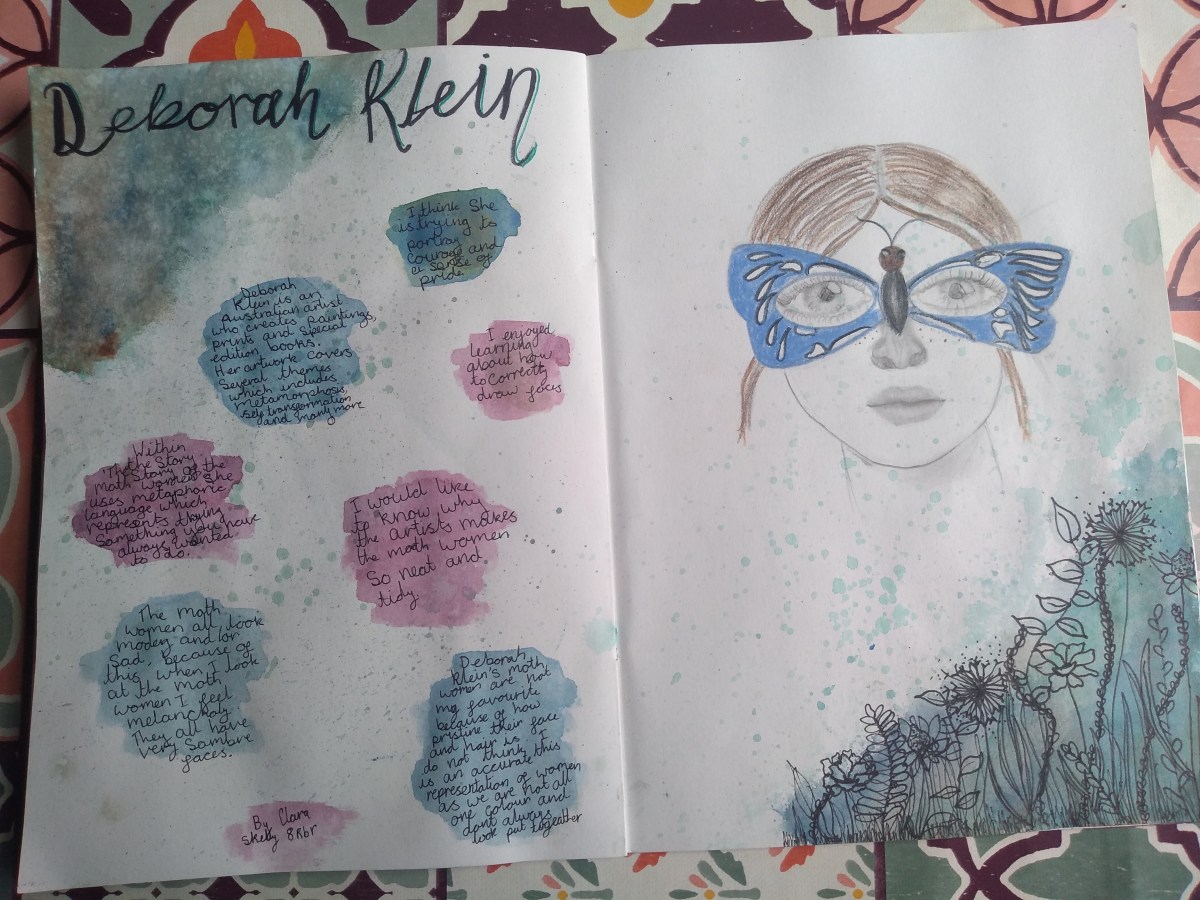 Deborah Klein
I think She
is trying to
portray
courage and
a sense of
pride
Deborah
Klein is an
Australian artist
who creates paintings,
prints and special
edition books.
Her artwork covers
Several themes
which includes
metamorphosis,
self transformation
and many more
I enjoyed
learning
about how
to correctly
draw faces
Within
The the Story
Story of the
moth women she
uses metaphoric
language which
represents trying
Something you have
always wanted
to do.
I would like
to know why
the artists makes
the moth women
So neat and
tidy.
The moth
women all look
moody and/or
Sad, because of
this, when I look
at the moth
women I feel
melancholy.
They all have
very Sombre
faces.
Deborah
Klein's moth
women are not
my favourite
because of how
pristine their face
and hair is I
do not think this
is an accurate
representation of women
as we are not all
one colour and
dont always
look put together
By Clara
Skelly 8Rbr